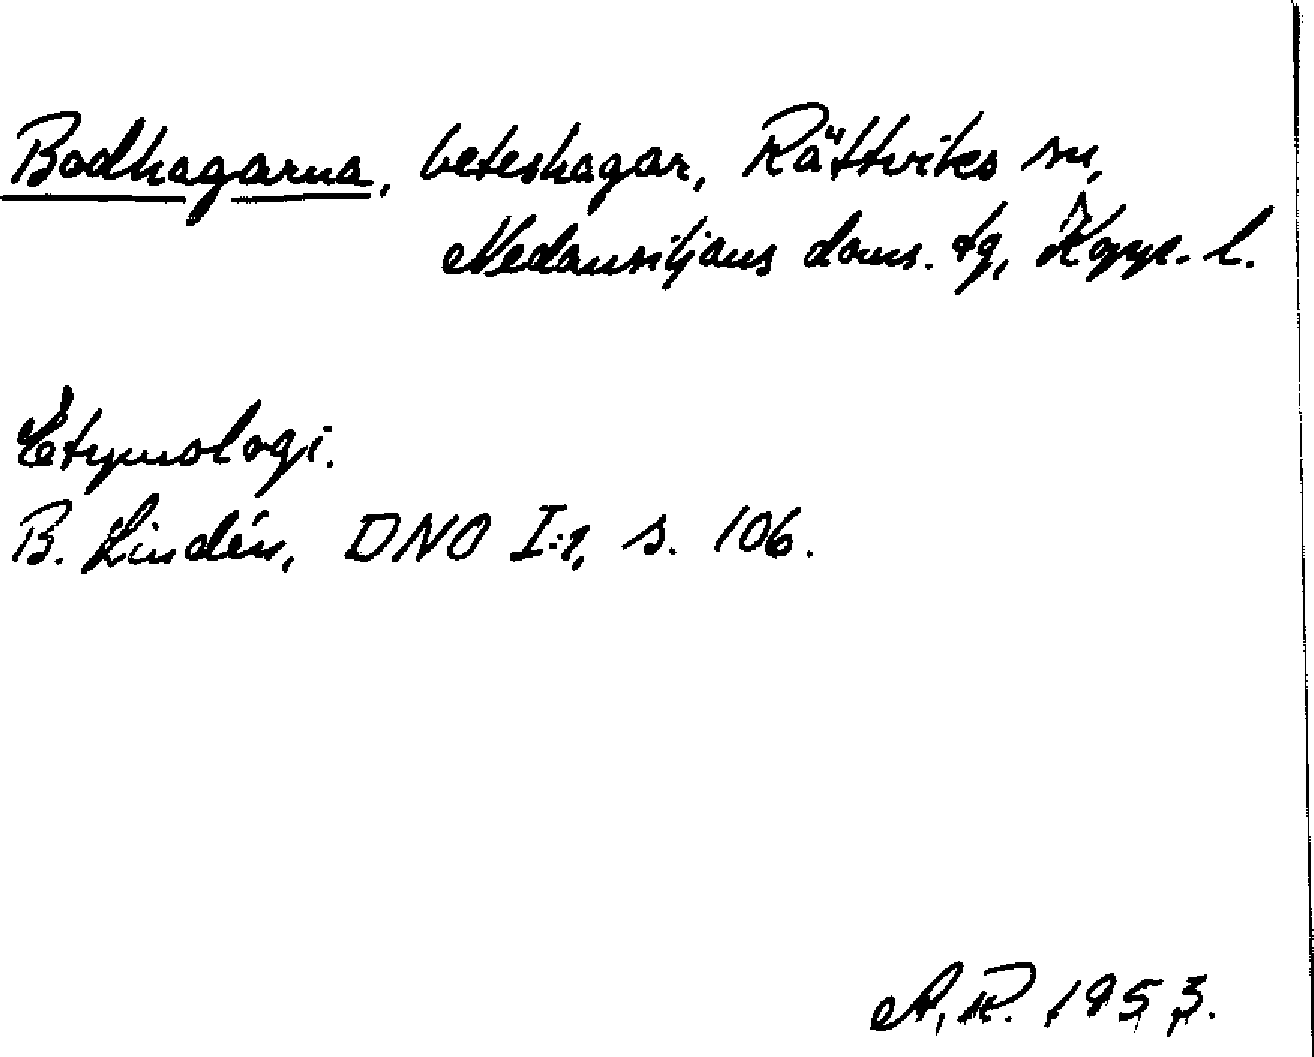 Bodhagarna, beteshagar, Rättviks sn,
Nedansiljans doms. tg, Kopp. l.
Etymologi.
B. Lindén, DNO I:1, s. 106.
A. R. 1953.